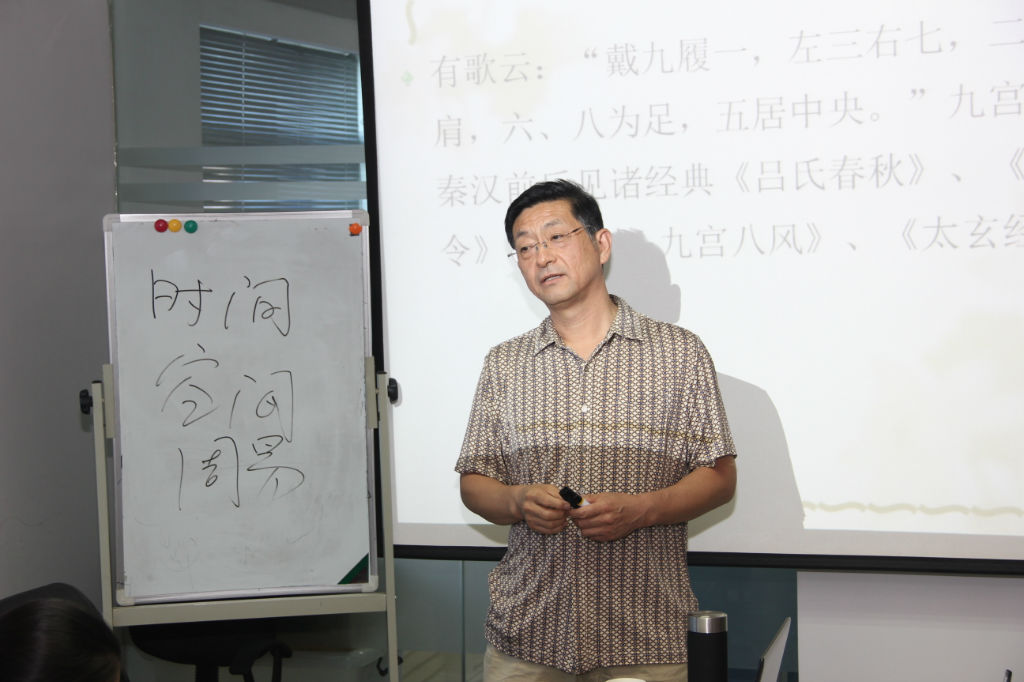 时间
空间
周易
有歌云：“戴九履一，左三右七，二
肩，六、八为足，五居中央。”九宫
秦汉前后见诸经典《吕氏春秋》、《
令》 九宫八风》、《太玄经